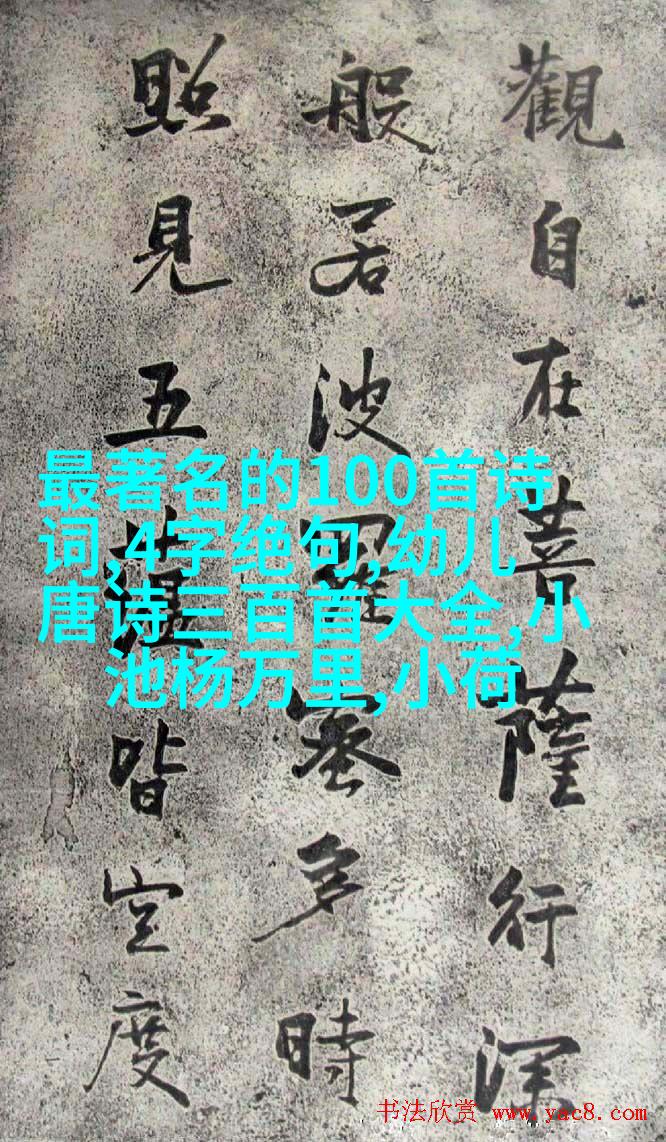 觀自在菩薩行深
般若波羅蜜多時
照見五蘊皆空度
最著名的100首诗
词,4字绝句,幼儿
唐诗三百首大全,小
池杨万里,小荷
书法欣赏 www.yac8.com